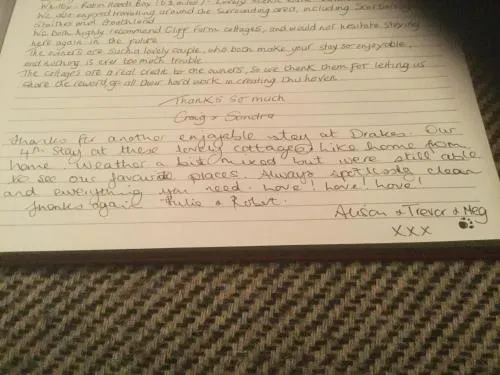 Whitby - Robin Hoods Bay (6.2 miles) - Lovely scenic
We also enjoyed travelling around the surrounding area, including Scarborough
Staithes and
We both highly recommend Cliff Farm Cottages, and would not hesitate staying
here again in the future.
The owners are such a lovely couple, who both make your stay so enjoyable,
and nothing is ever too much trouble
The cottages are a real credit to the owners, so we thank them for letting us
share the reward of all their hard work in creating this haven.
Thanks so much
Craig & Sandra
Thanks for another enjoyable stay at Drakes. Our
4th stay at these lovely cottages. Like home from
home. Weather a bit mixed but were still able
to see our favourite places. Always spotlessly clean
and everything you need. Love! Love! Love!
Thanks again Julie & Robert.
Alison & Trevor & Meg
xxx